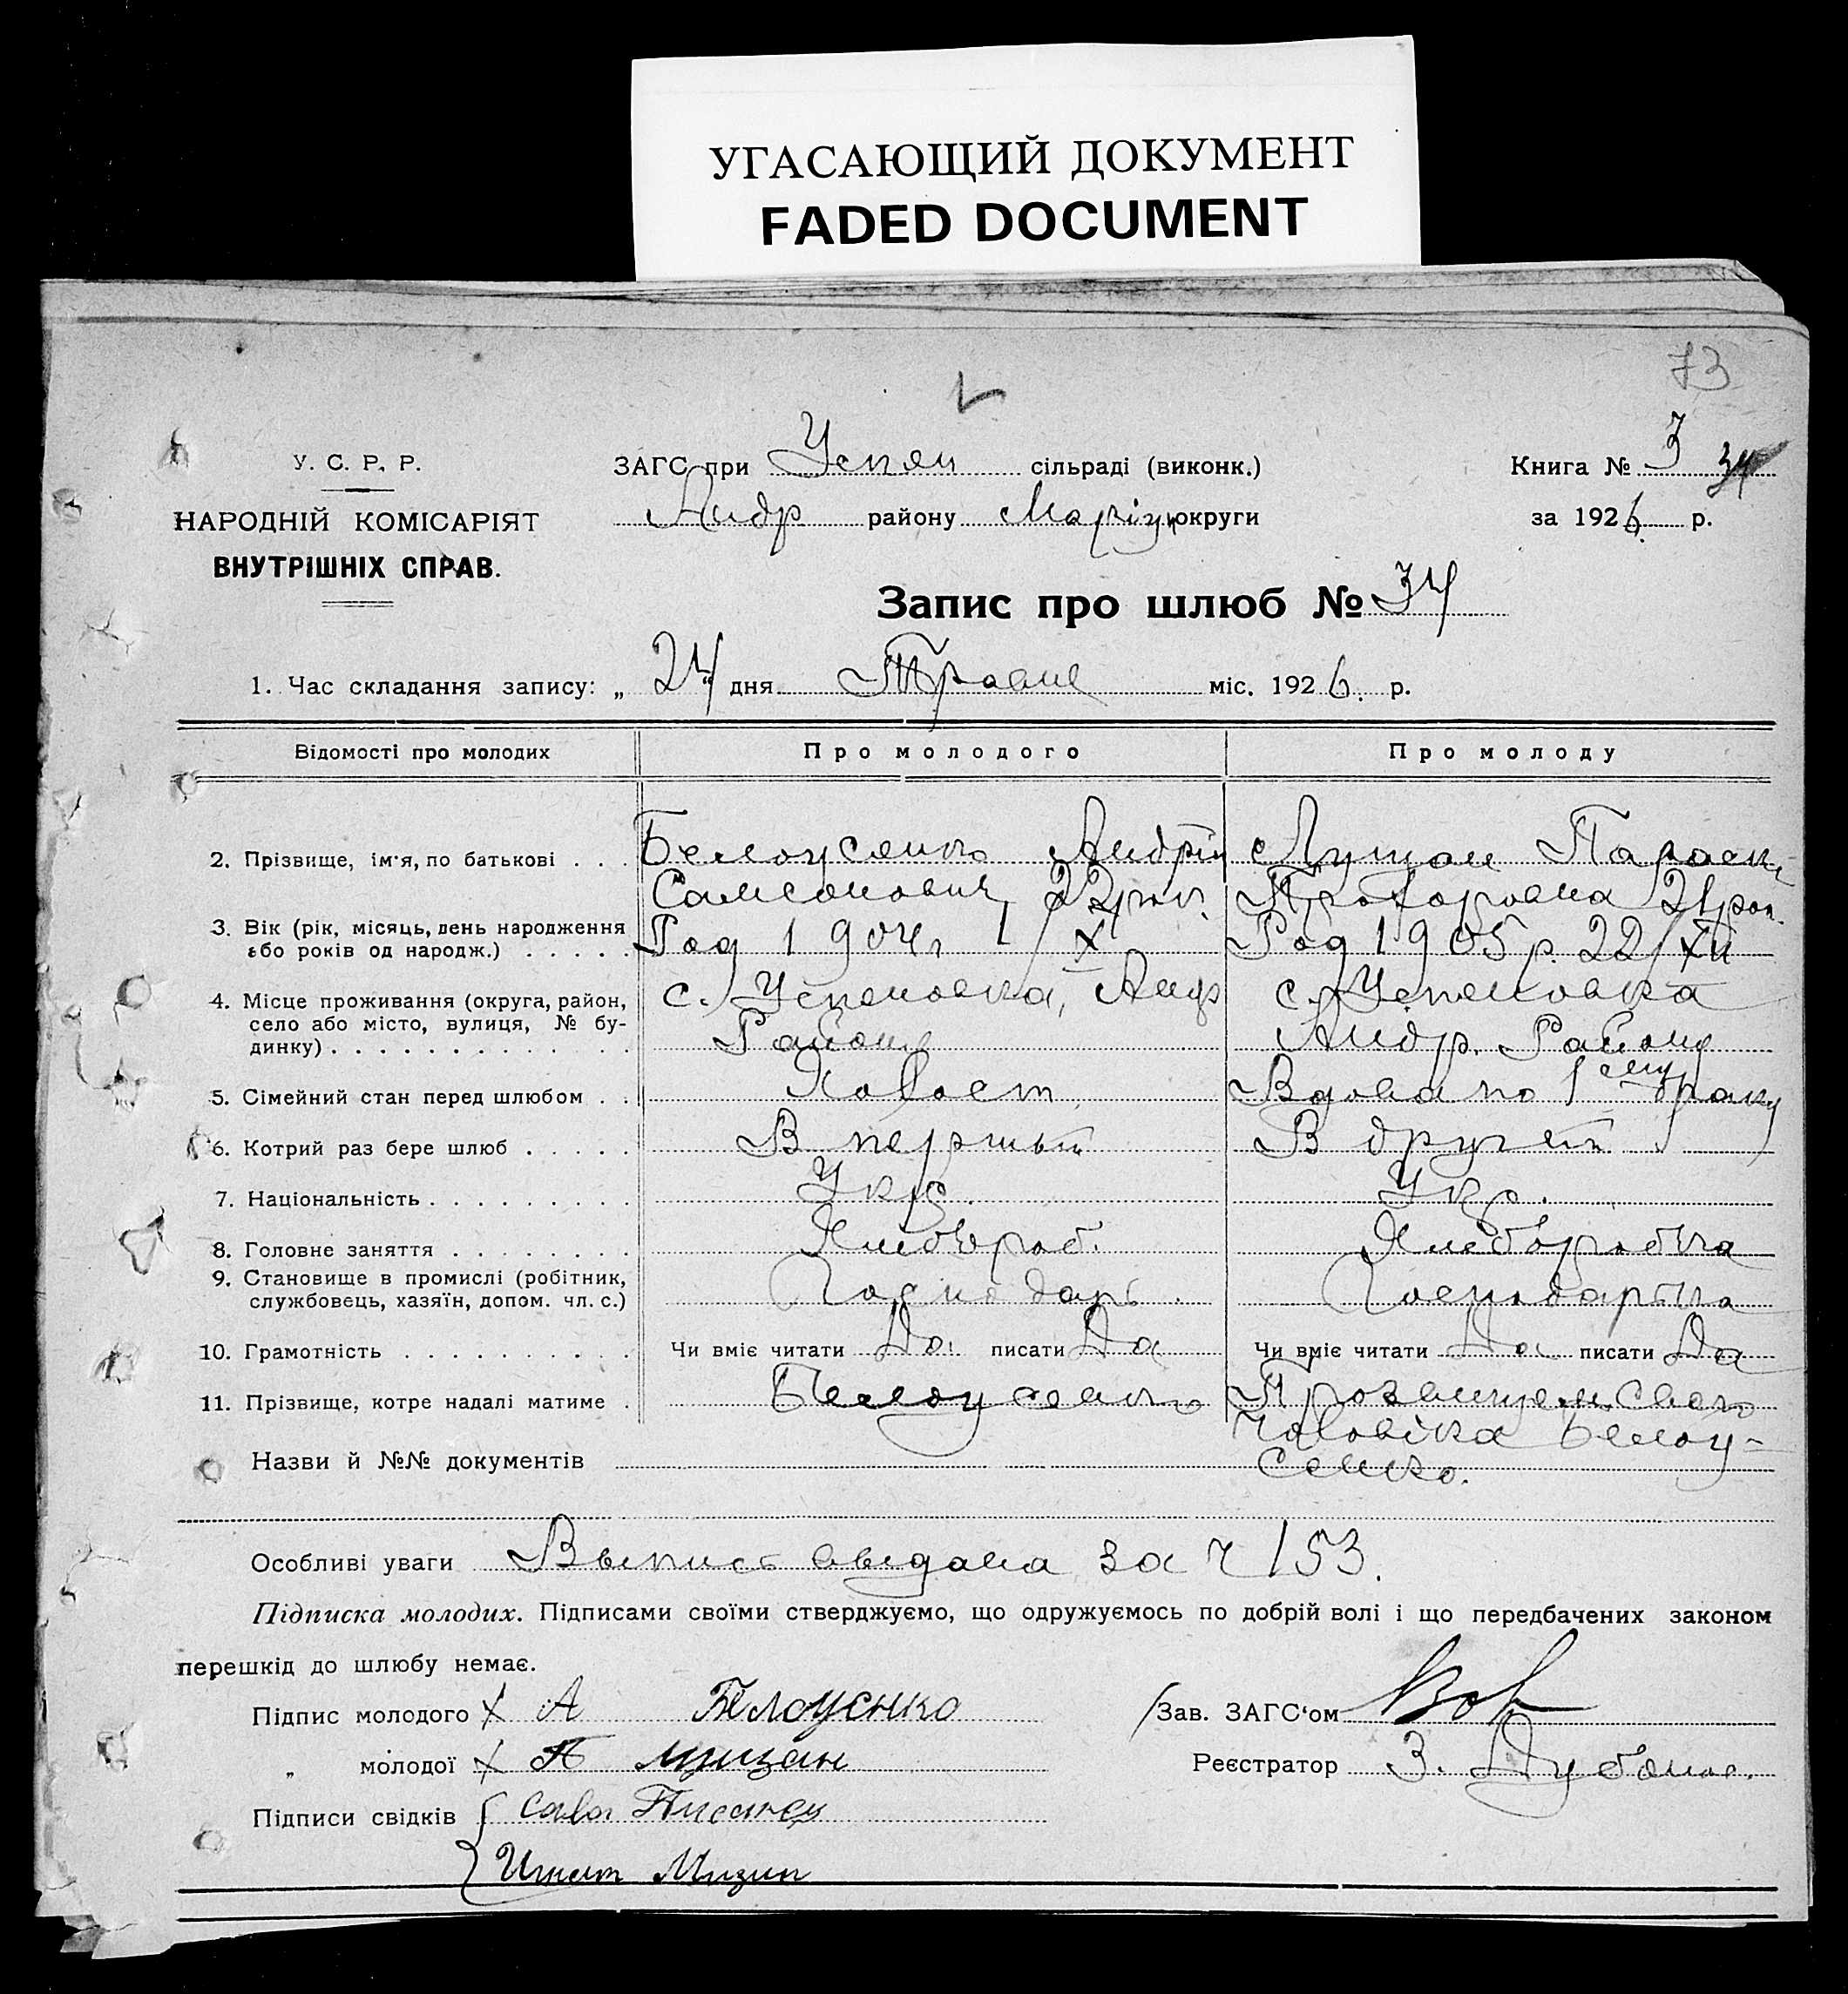 УГАСАЮЩИЙ ДОКУМЕНТ
FADED DOCUMENT
73
У. С. Р. Р.
НАРОДНІЙ КОМІСАРІЯТ
ВНУТРІШНІХ СПРАВ.
ЗАГС при Успен сільраді (виконк.)
Андр району Маріуп округи
Книга № 3 34
за 1926 р.
Запис про шлюб № 34
1. Час складання запису: „ 24 " дня Травня міс. 1926 р.
Відомості про молодих Про молодого Про молоду
2. Прізвище, ім'я, по батькові . . . Белоусенко Андрій Лущан Параск
Самсонович 22 рок. Прохоровна 21 рок.
3. Вік (рік, місяць, день народження або років од народж.) . . . . . Год 1904 г 1/X Год 1905 р. 22/XII
4. Місце проживання (округа, район, с. Успеновка, Андр с. Успеновка
село або місто, вулиця, № бу-
динку) . . . . . . . . . . . . . Району Андр. Району
5. Сімейний стан перед шлюбом . . Холост Вдова по 1 ему браку
6. Котрий раз бере шлюб . . . . . В первый В другий
7. Національність . . . . . . . . . Укр. Укр.
8. Головне заняття . . . . . . . . Хлібороб. Хлеборобка
9. Становище в промислі (робітник,
службовець, хазяїн, допом. чл. с.) Господарь. Господарька
10. Грамотність . . . . . . . . . . Чи вміє читати Да писати Да Чи вміє читати Да писати Да
11. Прізвище, котре надалі матиме . Белоусенко Прозвищем свого
чоловіка Белоу-
Назви й №№ документів сенко.
Особливі уваги Выпись выдана за ч 153.
Підписка молодих. Підписами своїми стверджуємо, що одружуємось по добрій волі і що передбачених законом
перешкід до шлюбу немає.
Підпис молодого х А Белоусенко Зав. ЗАГС'ом
„ молодої х П Лущан Реєстратор З.
Підписи свідків Сава